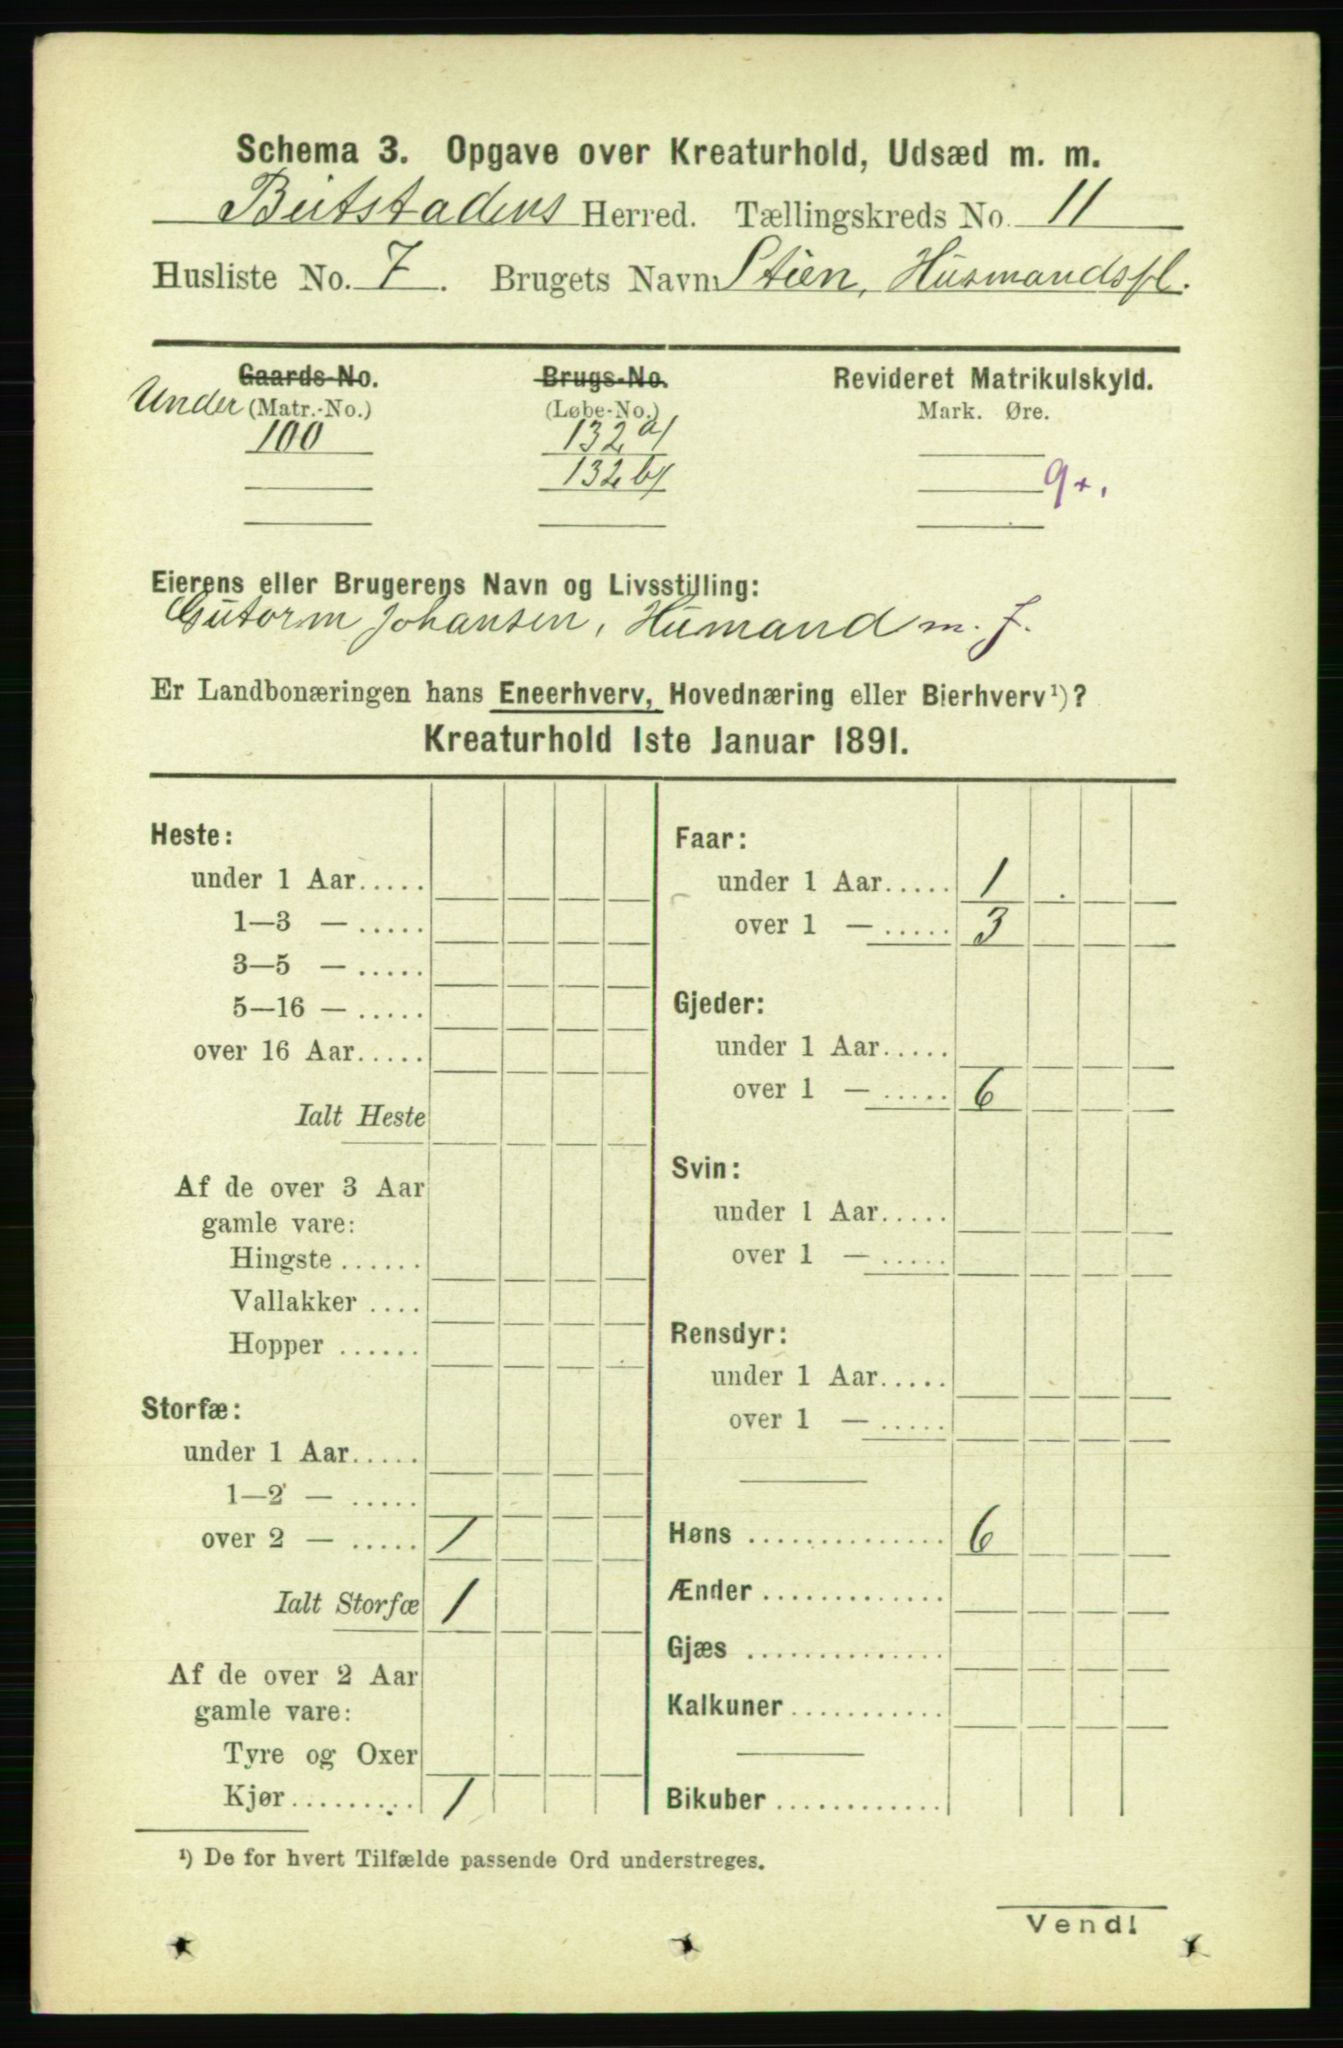 Schema 3. Opgave over Kreaturhold, Udsæd m. m.
Beitstadens Herred. Tællingskreds No. 11
Husliste No. 7. Brugets Navn Stien, Husmandspl.
Gaards-No. Brugs-No. Revideret Matrikulskyld.
Under (Matr.-No.) (Løbe-No.) Mark. Øre.
100 132 a/
132 b/ 9+.
Eierens eller Brugerens Navn og Livsstilling:
Gutorm Johansen, Humand m. J.
Er Landbonæringen hans Eneerhverv, Hovednæring eller Bierhverv¹)?
Kreaturhold 1ste Januar 1891.
Heste:
under 1 Aar.....
1—3 — .....
3—5 — .....
5—16 — .....
over 16 Aar.....
Ialt Heste
Af de over 3 Aar
gamle vare:
Hingste ......
Vallakker ....
Hopper ......
Storfæ:
under 1 Aar.....
1—2 — .....
over 2 — ..... 1
Ialt Storfæ 1
Af de over 2 Aar
gamle vare:
Tyre og Oxer
Kjør.......... 1
Faar:
under 1 Aar..... 1
over 1 — ..... 3
Gjeder:
under 1 Aar.....
over 1 — ..... 6
Svin:
under 1 Aar.....
over 1 — .....
Rensdyr:
under 1 Aar.....
over 1 — .....
Høns .............. 6
Ænder .............
Gjæs ..............
Kalkuner ...........
Bikuber ............
¹) De for hvert Tilfælde passende Ord understreges.
Vend!